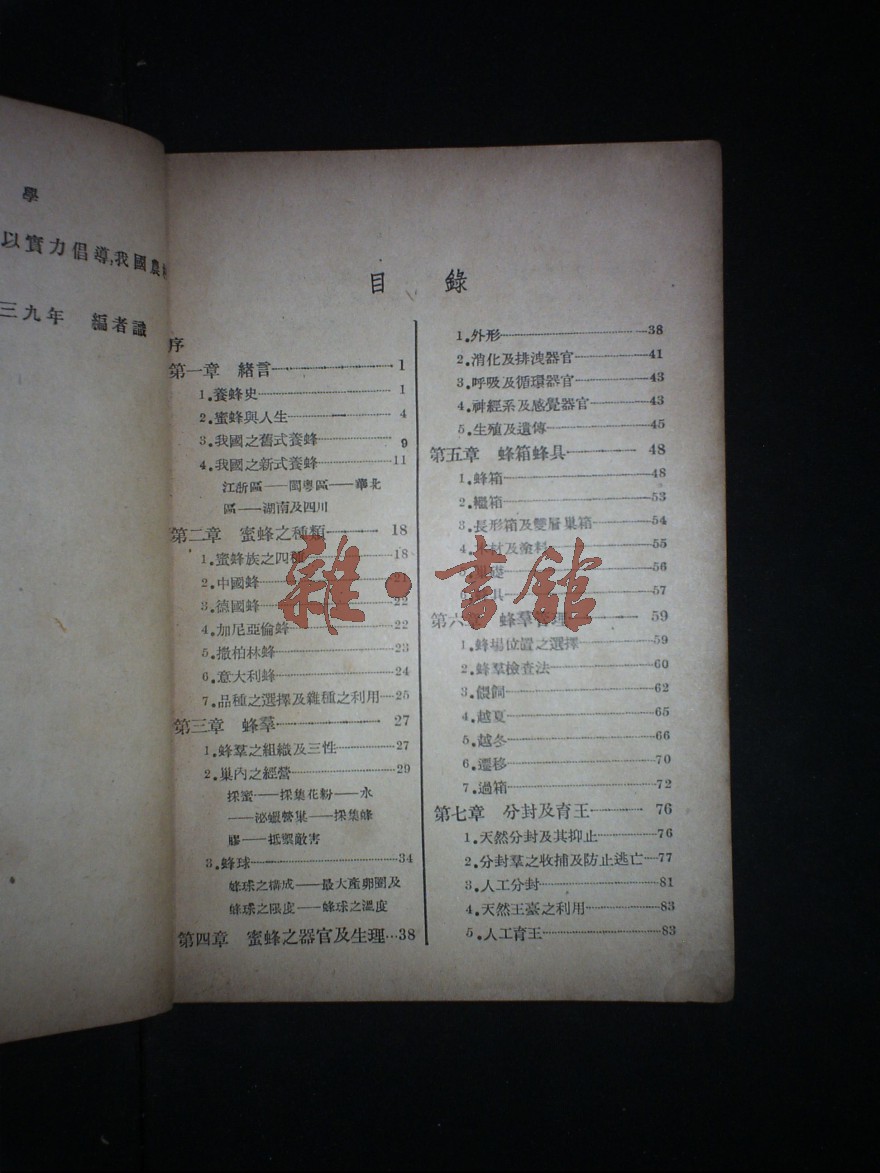 學
以實力倡導,我國農
三九年 編者識
目錄
序
第一章 緒言 1
1.養蜂史 1
2.蜜蜂與人生 4
3.我國之舊式養蜂 9
4.我國之新式養蜂 11
江浙區——閩粵區——華北
區——湖南及四川
第二章 蜜蜂之種類 18
1.蜜蜂族之四種 18
2.中國蜂 21
3.德國蜂 22
4.加尼亞倫蜂 22
5.撒柏林蜂 23
6.意大利蜂 24
7.品種之選擇及雜種之利用 25
第三章 蜂羣 27
1.蜂羣之組織及三性 27
2.巢內之經營 29
採蜜——採集花粉——水
——泌蠟營巢——採集蜂
膠——抵禦敵害
3.蜂球 34
蜂球之構成——最大產卵圈及
蜂球之限度——蜂球之溫度
第四章 蜜蜂之器官及生理 38
1.外形 38
2.消化及排洩器官 41
3.呼吸及循環器官 43
4.神經系及感覺器官 43
5.生殖及遺傳 45
第五章 蜂箱蜂具 48
1.蜂箱 48
2.繼箱 53
3.長形箱及雙層巢箱 54
4.木材及塗料 55
5.巢礎 56
具 57
第六章 蜂羣管理 59
1.蜂場位置之選擇 59
2.蜂羣檢查法 60
3.餵飼 62
4.越夏 65
5.越冬 66
6.遷移 70
7.過箱 72
第七章 分封及育王 76
1.天然分封及其抑止 76
2.分封羣之收捕及防止逃亡 77
3.人工分封 81
4.天然王臺之利用 83
5.人工育王 83
雜·書館